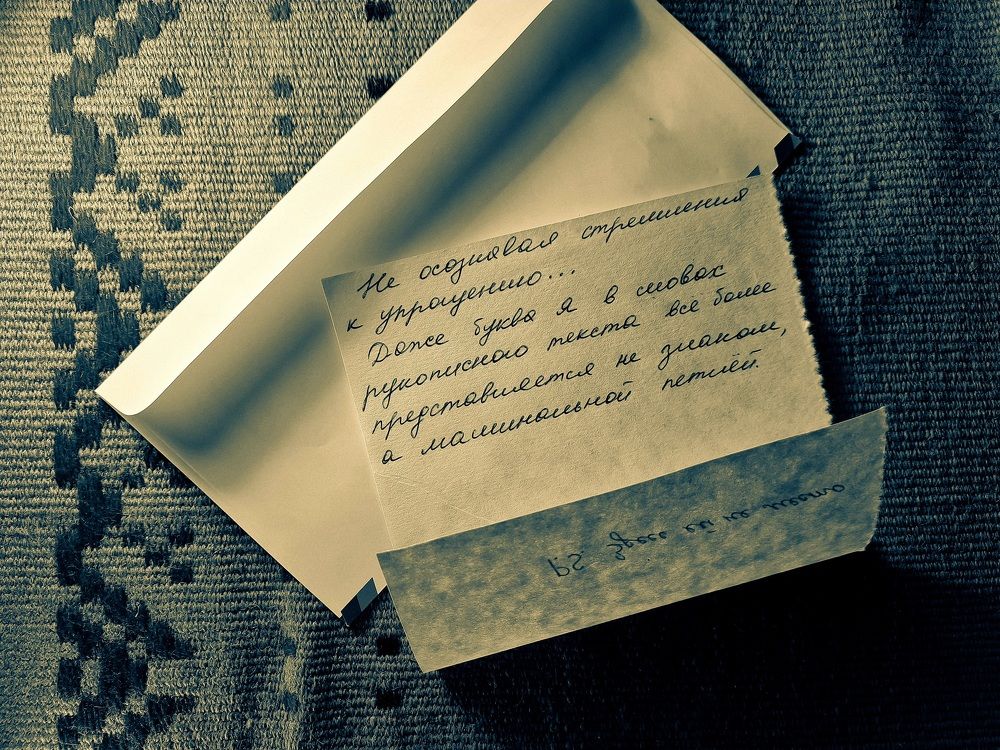 Не осознавая стремления
к упрощению...
Даже буква я в словах
рукописного текста всё более
представляется не знаком,
а машинальной петлёй.